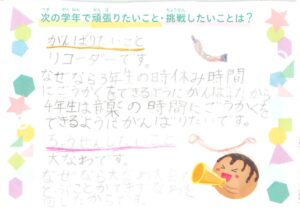 次の学年で頑張りたいこと・挑戦したいことは?
がんばりたいこと
リコーダーです。
なぜなら3年生の時休み時間
にごうかくをできるようにがんばったから
4年生は音楽の時間にごうかくを
できるようにがんばりたいです。
ちょうせんしたいこと
大なわです。
なぜなら大なわ
とぶことができ